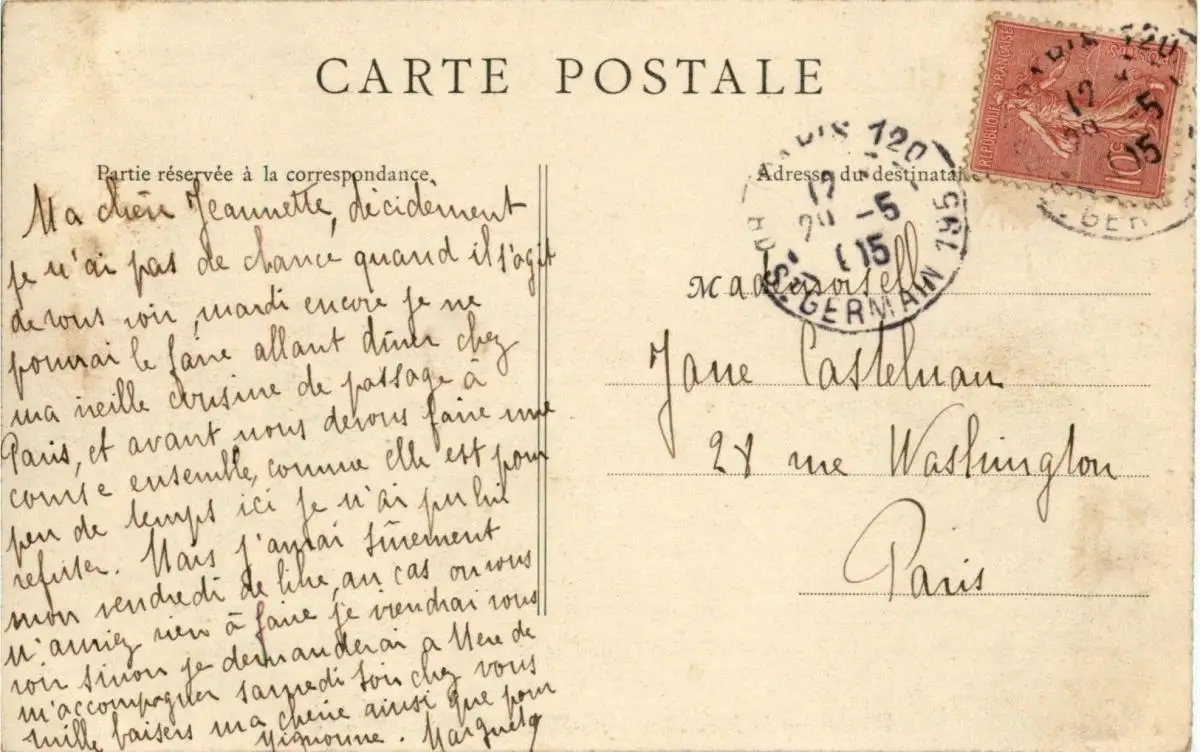 CARTE POSTALE
Partie réservée à la correspondance
Adresse du destinatai
RÉPUBLIQUE FRANÇAISE
10
PARIS 120
12
-5
15
GERM
PARIS 120
12
20 -5
15
Bd ST. GERMAIN 195
Ma chère Jeannette, décidément
je n'ai pas de chance quand il s'agit
de vous voir, mardi encore je ne
pourrai le faire allant dîner chez
ma vieille cousine de passage à
Paris, et avant nous devons faire une
course ensemble, comme elle est pour
peu de temps ici je n'ai pu lui
refuser. Mais j'aurai sûrement
mon vendredi de libre, au cas où vous
n'auriez rien à faire je viendrai vous
voir sinon je demanderai a Mère de
m'accompagner samedi soir chez vous
mille baisers ma chérie ainsi que pour
Mignonne.
Mademoiselle
Jane Castelnau
28 rue Washington
Paris